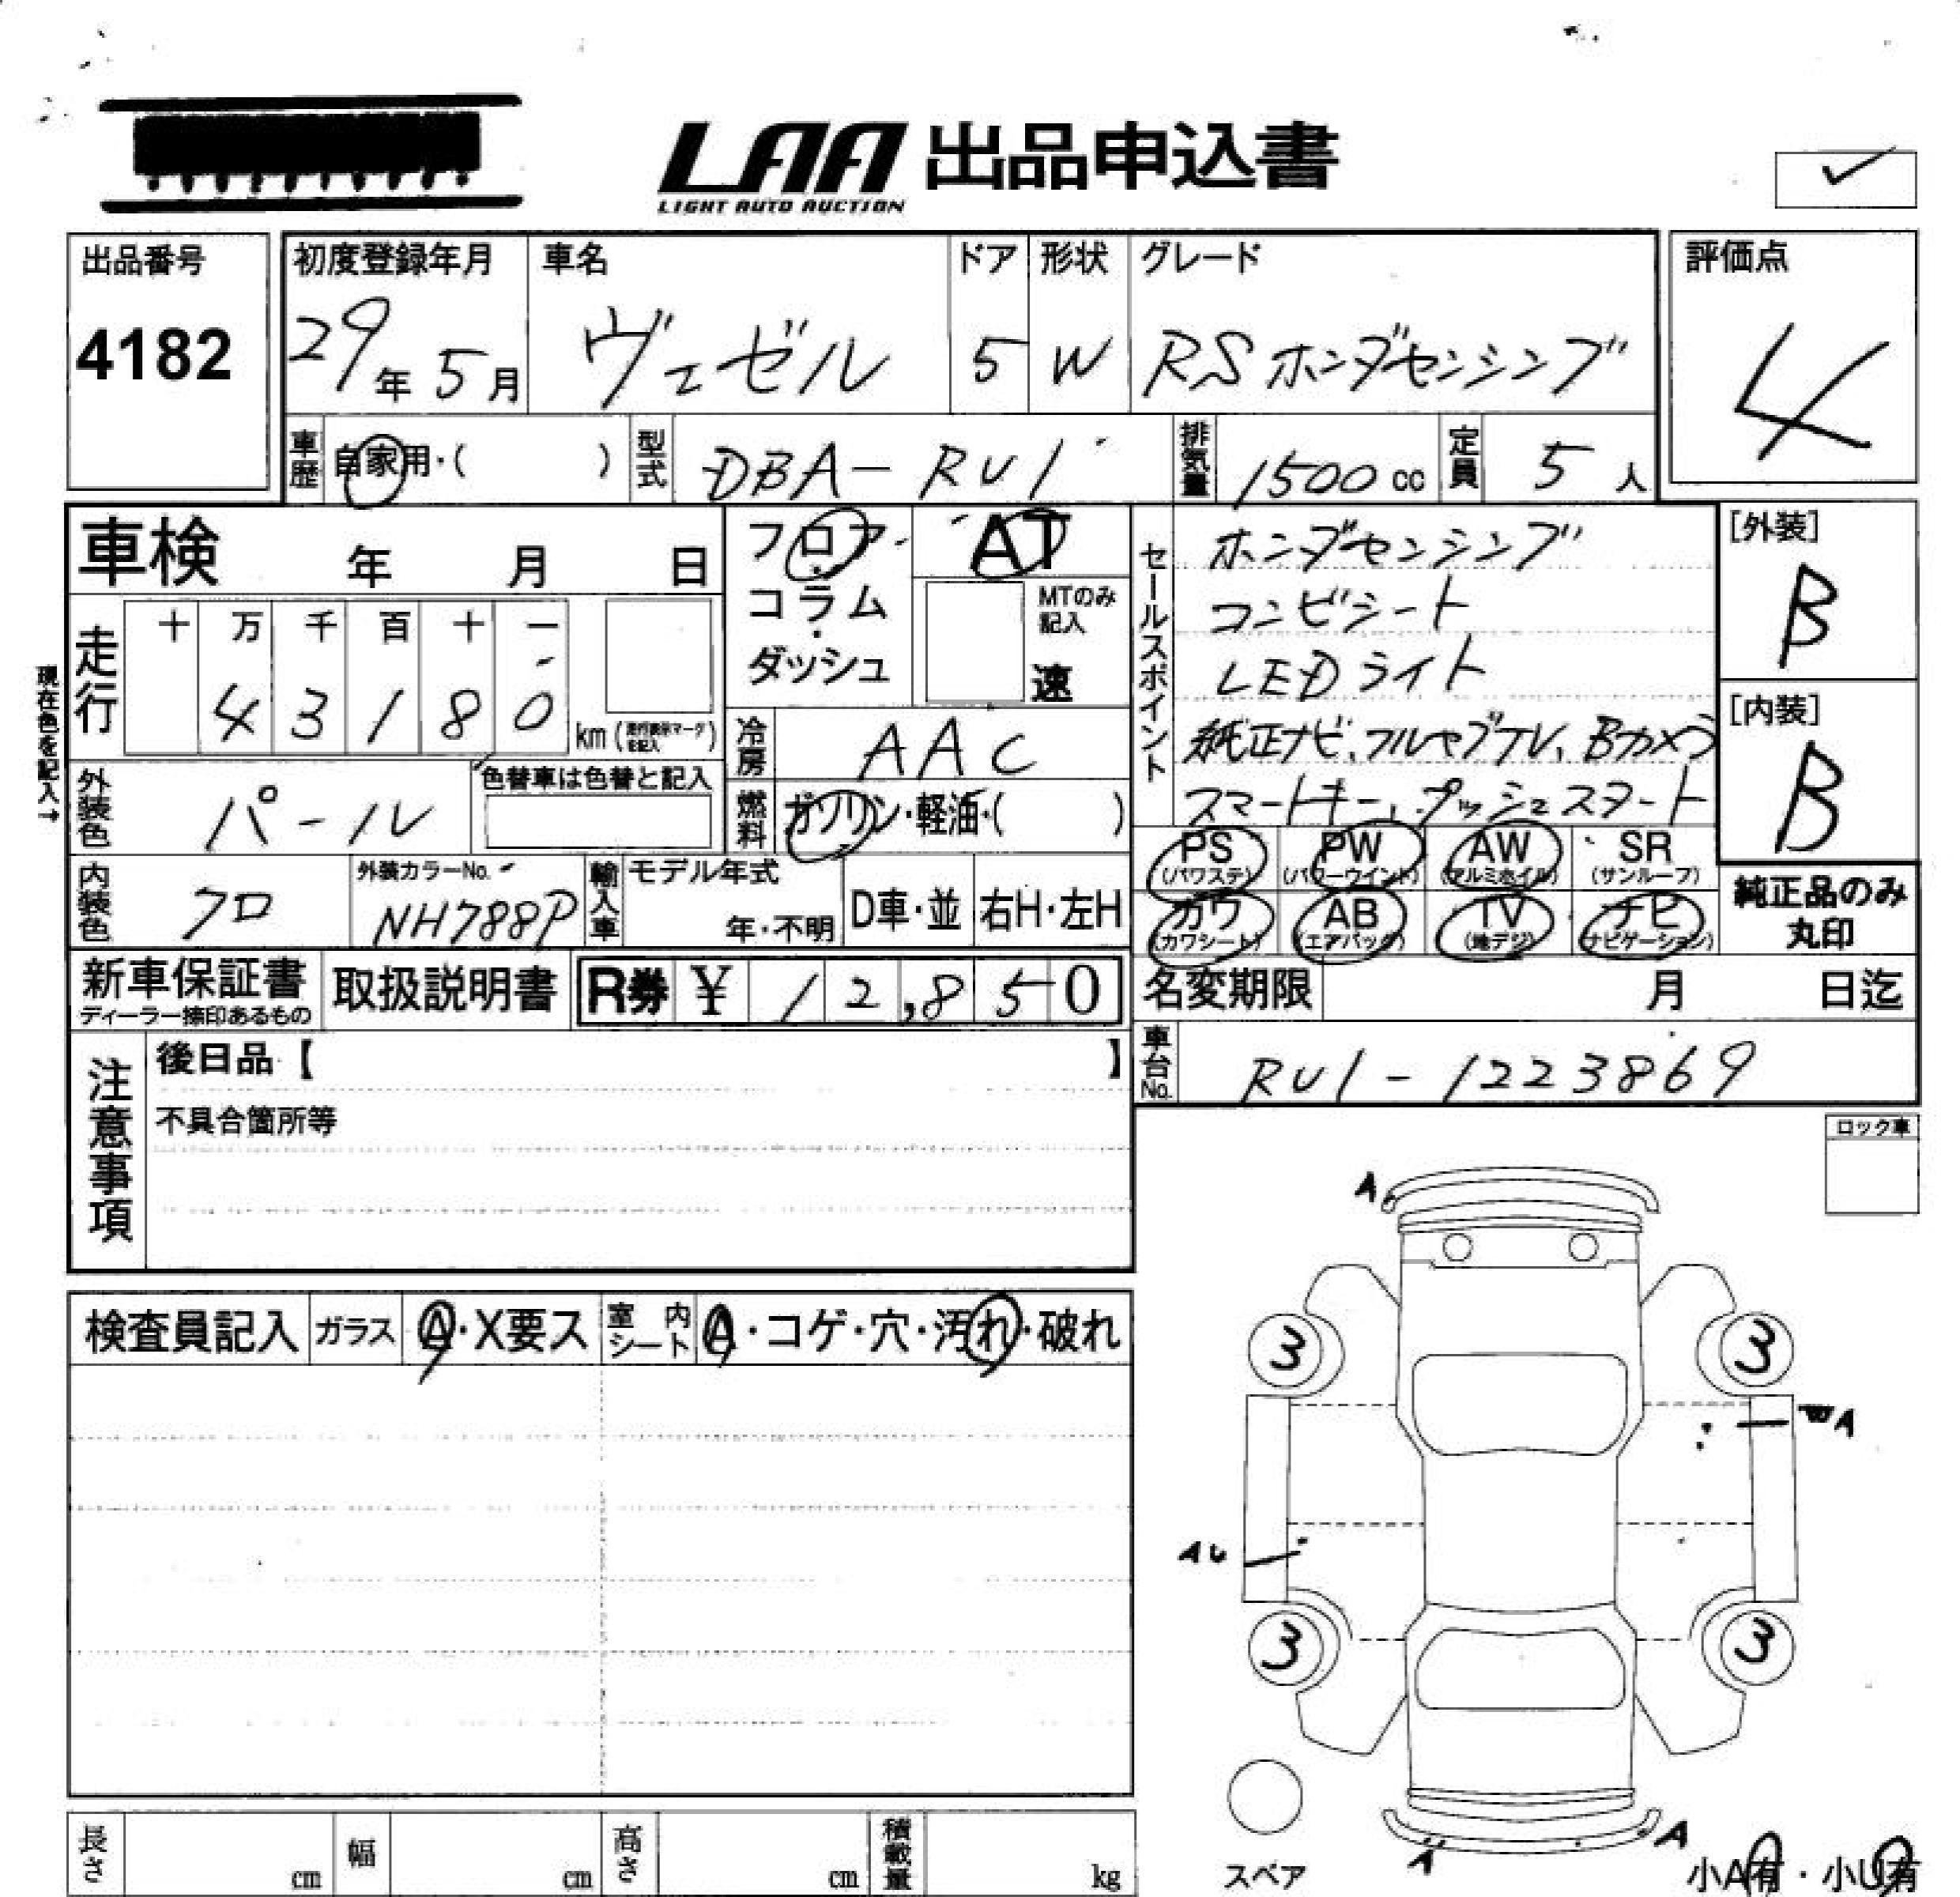 LAA 出品申込書
LIGHT AUTO AUCTION
出品番号
4182
初度登録年月
29年5月
車名
ヴェゼル
ドア
5
形状
W
グレード
RSホンダセンシング
評価点
4
車歴
自家用・( )
型式
DBA-RU1
排気量
1500cc
定員
5人
車検 年 月 日
フロア・
コラム・
ダッシュ
AT
MTのみ記入
速
セールスポイント
ホンダセンシング
コンビシート
LEDライト
純正ナビ、フルセグTV、Bカメラ
スマートキー、プッシュスタート
[外装]
B
[内装]
B
現在色を記入→
走行
十 万 千 百 十 一
4 3 1 8 0 km (走行表示マークを記入)
冷房
AAC
外装色
パール
色替車は色替と記入
燃料
ガソリン・軽油・( )
PS (パワステ)
PW (パワーウインド)
AW (アルミホイル)
SR (サンルーフ)
内装色
クロ
外装カラーNo.
NH788P
輸入車
モデル年式
年・不明
D車・並
右H・左H
カワ (カワシート)
AB (エアバック)
TV (地デジ)
ナビ (ナビゲーション)
純正品のみ
丸印
新車保証書
ディーラー捺印あるもの
取扱説明書
R券 ¥ 12,850
名変期限 月 日迄
車台No.
RU1-1223869
注意事項
後日品【 】
不具合箇所等
ロック車
検査員記入
ガラス
A・X要ス
室内シート
A・コゲ・穴・汚れ・破れ
A
3
3
A
AU
3
3
A
A
スペア
小A有・小U有
長さ cm
幅 cm
高さ cm
積載量 kg